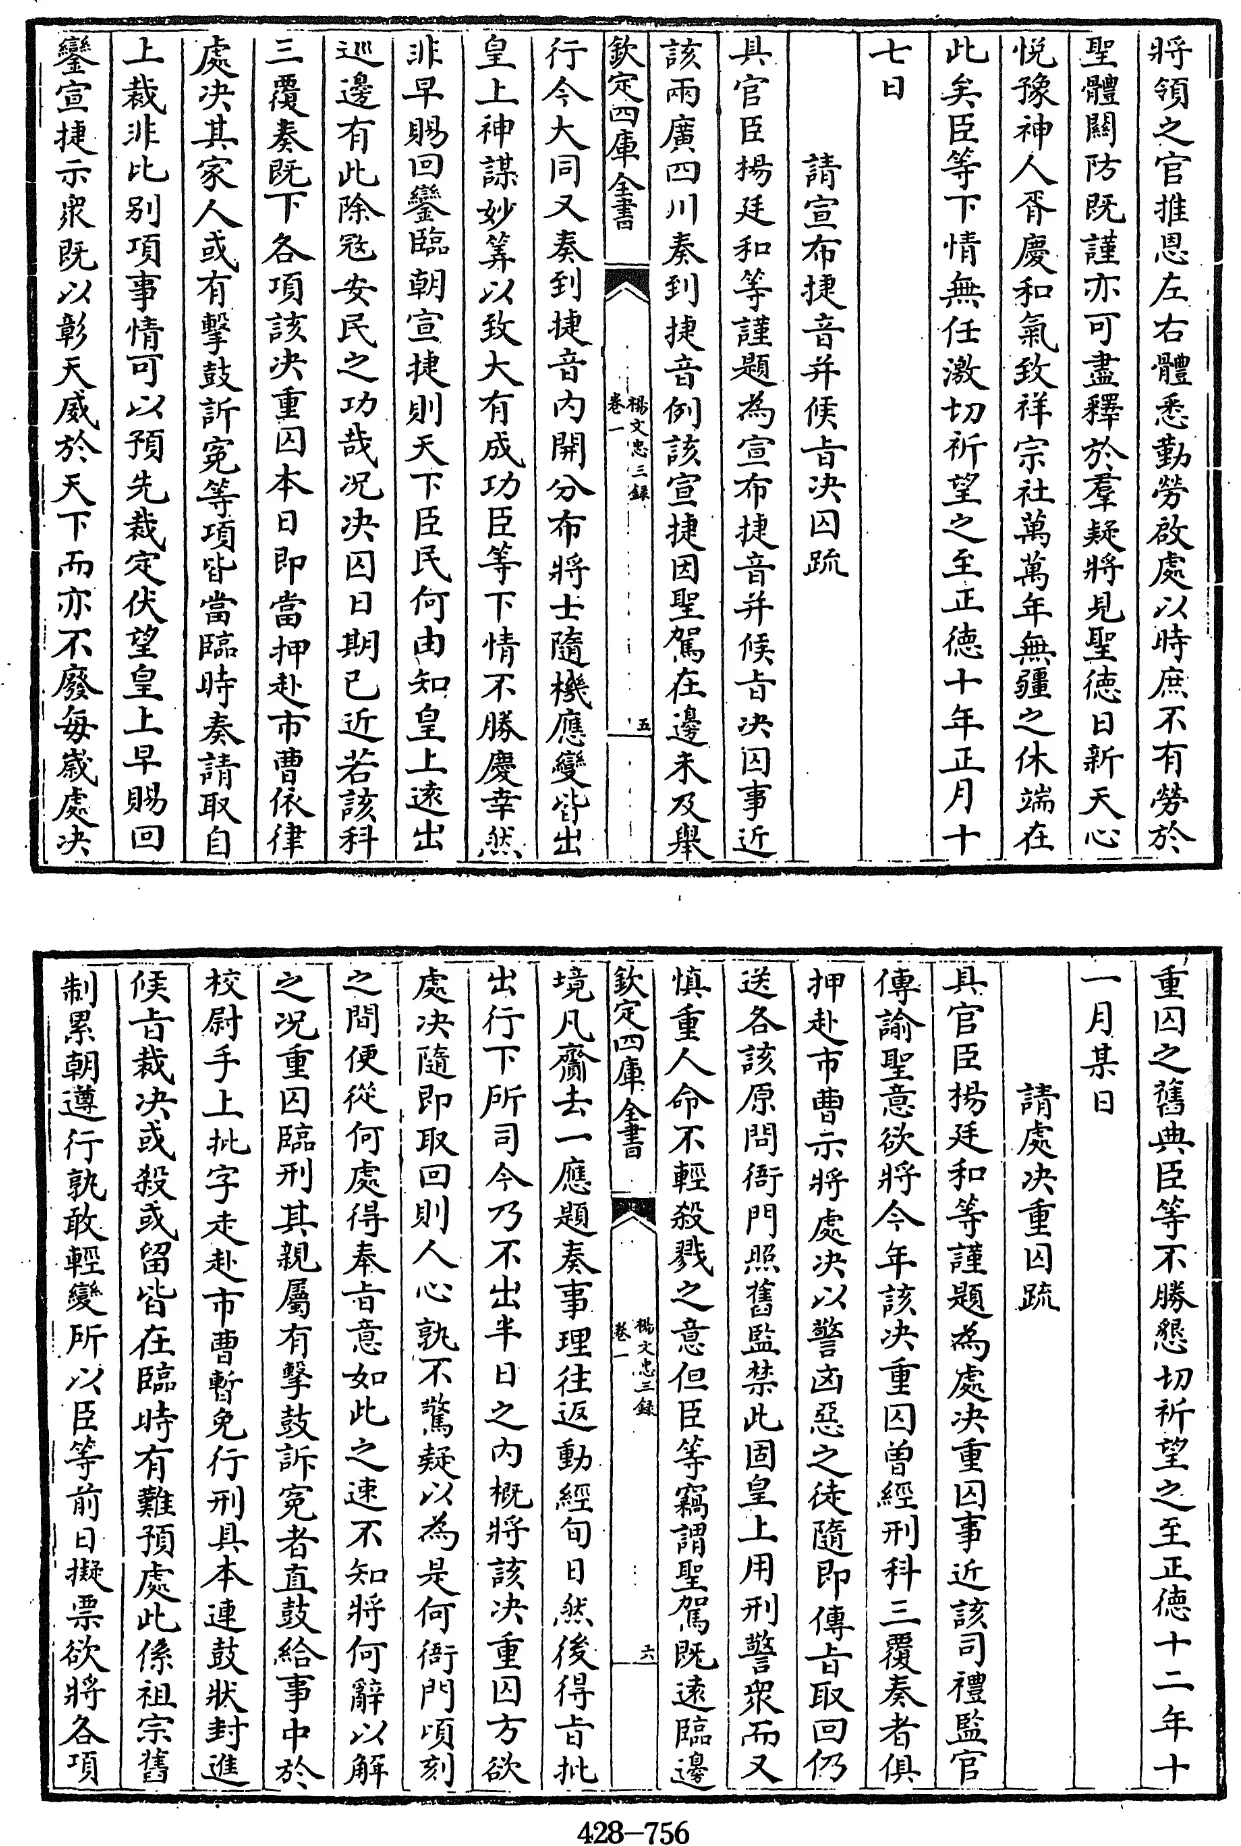 將領之官推恩左右體悉勤勞啟處以時庶不有勞於
聖體關防既謹亦可盡釋於羣疑將見聖徳日新天心
悦豫神人胥慶和氣致祥宗社萬萬年無疆之休端在
此矣臣等下情無任激切祈望之至正徳十年正月十
七日
請宣布捷音并候㫖决囚疏
具官臣楊廷和等謹題為宣布捷音并候㫖决囚事近
該兩廣四川奏到捷音例該宣捷因聖駕在邊未及舉
欽定四庫全書
楊文忠三録
卷一
五
行今大同又奏到捷音内開分布將士隨機應變皆出
皇上神謀妙筭以致大有成功臣等下情不勝慶幸然
非早賜回鑾臨朝宣捷則天下臣民何由知皇上逺出
巡邊有此除冦安民之功哉况决囚日期已近若該科
三覆奏既下各項該决重囚本日即當押赴市曹依律
處决其家人或有擊鼓訴寃等項皆當臨時奏請取自
上裁非比别項事情可以預先裁定伏望皇上早賜回
鑾宣捷示衆既以彰天威於天下而亦不廢每嵗處决
重囚之舊典臣等不勝懇切祈望之至正徳十二年十
一月某日
請處决重囚疏
具官臣楊廷和等謹題為處决重囚事近該司禮監官
傳諭聖意欲將今年該决重囚曽經刑科三覆奏者俱
押赴市曹示將處决以警凶惡之徒隨即傳㫖取回仍
送各該原問衙門照舊監禁此固皇上用刑警衆而又
慎重人命不輕殺戮之意但臣等竊謂聖駕既逺臨邊
欽定四庫全書
楊文忠三録
卷一
六
境凡齎去一應題奏事理往返動經旬日然後得㫖批
出行下所司今乃不出半日之内概將該决重囚方欲
處决隨即取回則人心孰不驚疑以為是何衙門頃刻
之間便從何處得奉㫖意如此之速不知將何辭以解
之况重囚臨刑其親屬有擊鼓訴寃者直鼓給事中於
校尉手上批字走赴市曹暫免行刑具本連鼓狀封進
候㫖裁决或殺或留皆在臨時有難預處此係祖宗舊
制累朝遵行孰敢輕變所以臣等前日擬票欲將各項
428-756